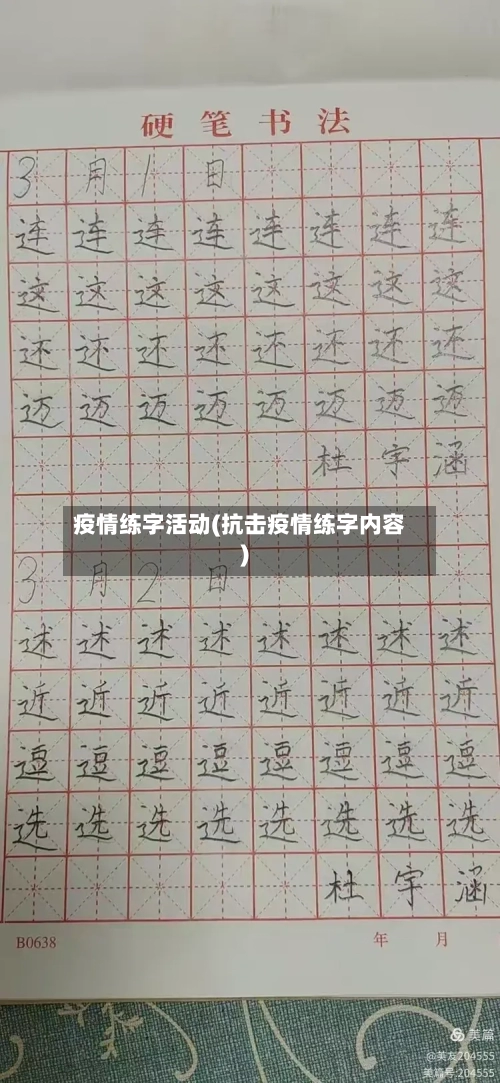 硬笔书法
3月1日
连连连连连连连连
这这这这这这这这
还还还还还还还还
迈迈迈迈迈迈迈迈
杜宇涵
疫情练字活动(抗击疫情练字内容
)
3月2日
述述述述述述述述
近近近近近近近近
逗逗逗逗逗逗逗逗
选选选选选选选选
杜宇涵
B0638 年 月
美篇
@美友204555
美篇号:204555